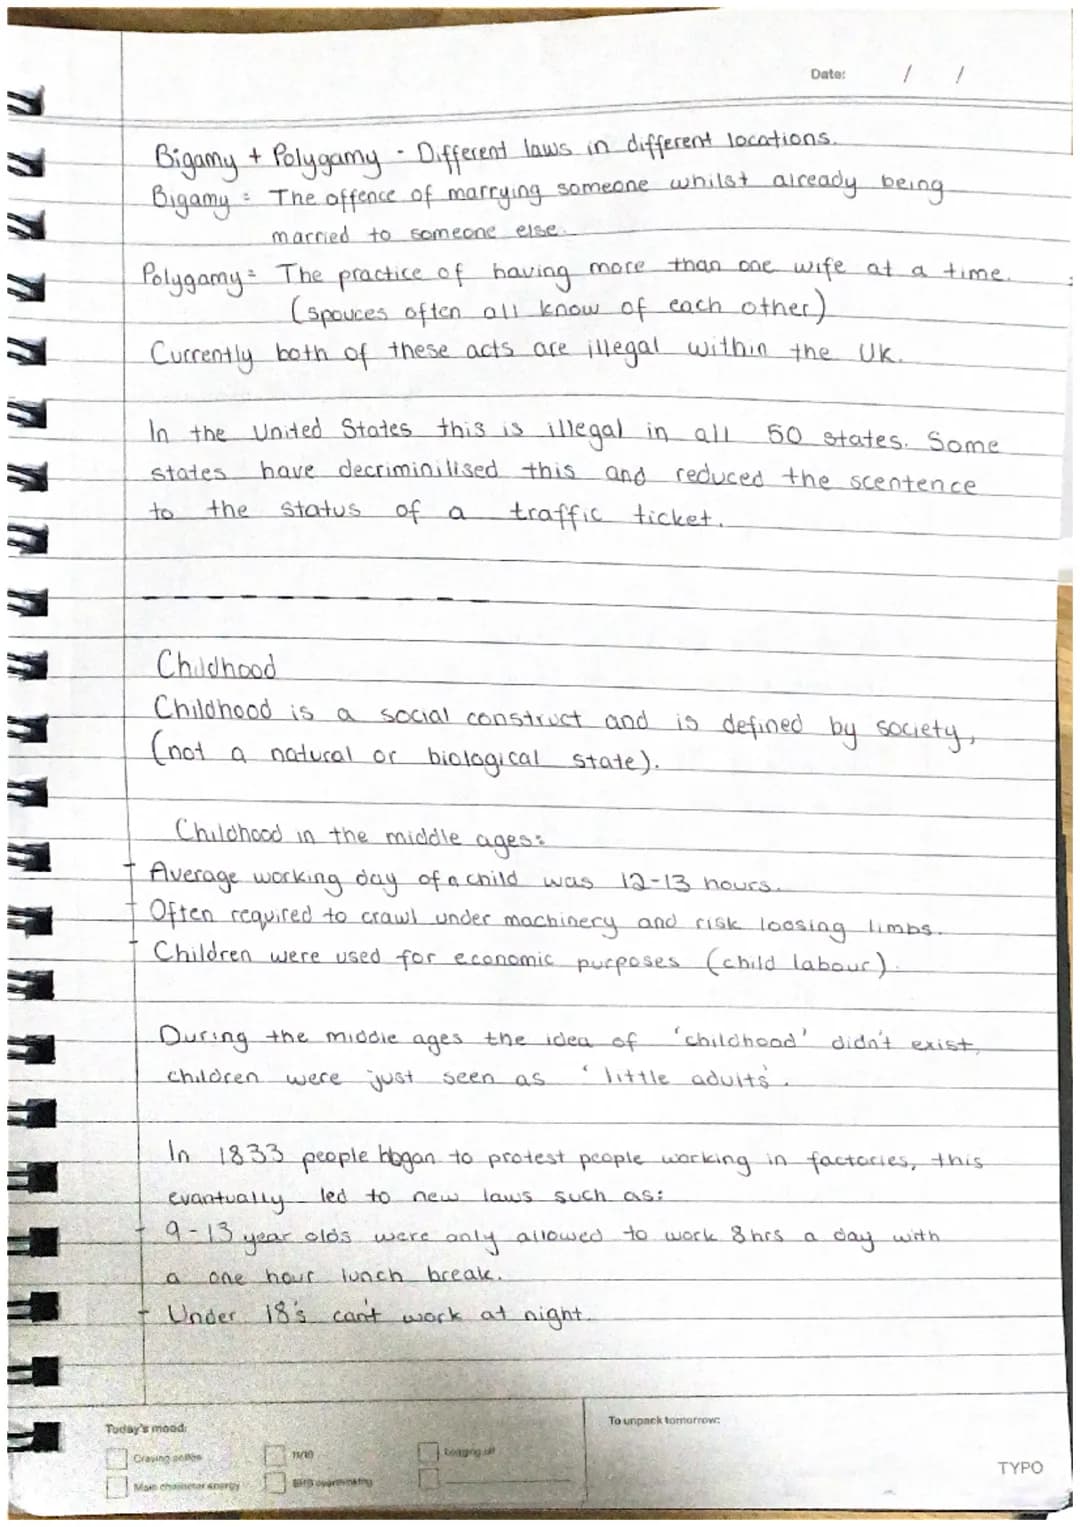 Date: / /
Bigamy + Polygamy - Different laws in different locations.
Bigamy = The offence of marrying someone whilst already being
married to someone else.
Polygamy = The practice of having more than one wife at a time.
(spouces often all know of each other)
Currently both of these acts are illegal within the UK.
In the United States this is illegal in all 50 states. Some
states have decriminilised this and reduced the scentence
to the status of a traffic ticket.
Childhood
Childhood is a social construct and is defined by society,
(not a natural or biological state).
Childhood in the middle ages:
- Average working day of a child was 12-13 hours.
- Often required to crawl under machinery and risk loosing limbs.
- Children were used for economic purposes (child labour).
During the middle ages the idea of 'childhood' didn't exist,
children were just seen as 'little adults'.
In 1833 people began to protest people working in factories, this
evantually led to new laws such as:
- 9-13 year olds were only allowed to work 8hrs a day with
a one hour lunch break.
- Under 18's can't work at night.
Today's mood:
To unpack tomorrow:
Craving coffee
11/10
Logging off
Main character energy
BRB overthinking
TYPO